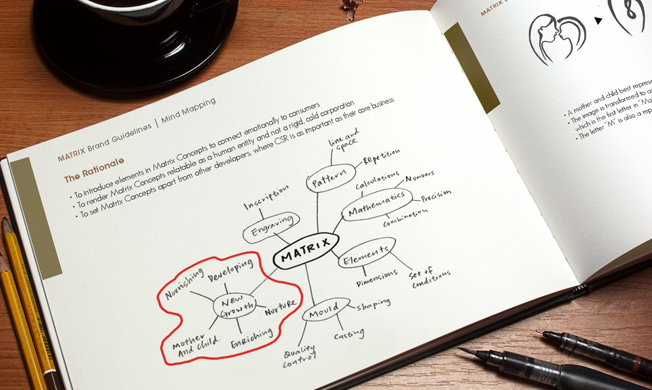 MATRIX Brand Guidelines | Mind Mapping
The Rationale
• To introduce elements in Matrix Concepts to connect emotionally to consumers
• To render Matrix Concepts relatable as a human entity and not a rigid, cold corporation
• To set Matrix Concepts apart from other developers, where CSR is as important as their core business
time and
space
Pattern
Repetition
Inscription
Engraving
Calculations
Numbers
Mathematics
Precision
Combination
MATRIX
Elements
Dimensions
Set of
conditions
Nourishing
Developing
New
Growth
Nurture
Mother
And Child
Enriching
Mould
Shaping
Casting
Quality
Control
MATRIX
• A mother and child best repres
• The image is transformed to
which is the first letter in "Ma
• The letter "M" is also a rep